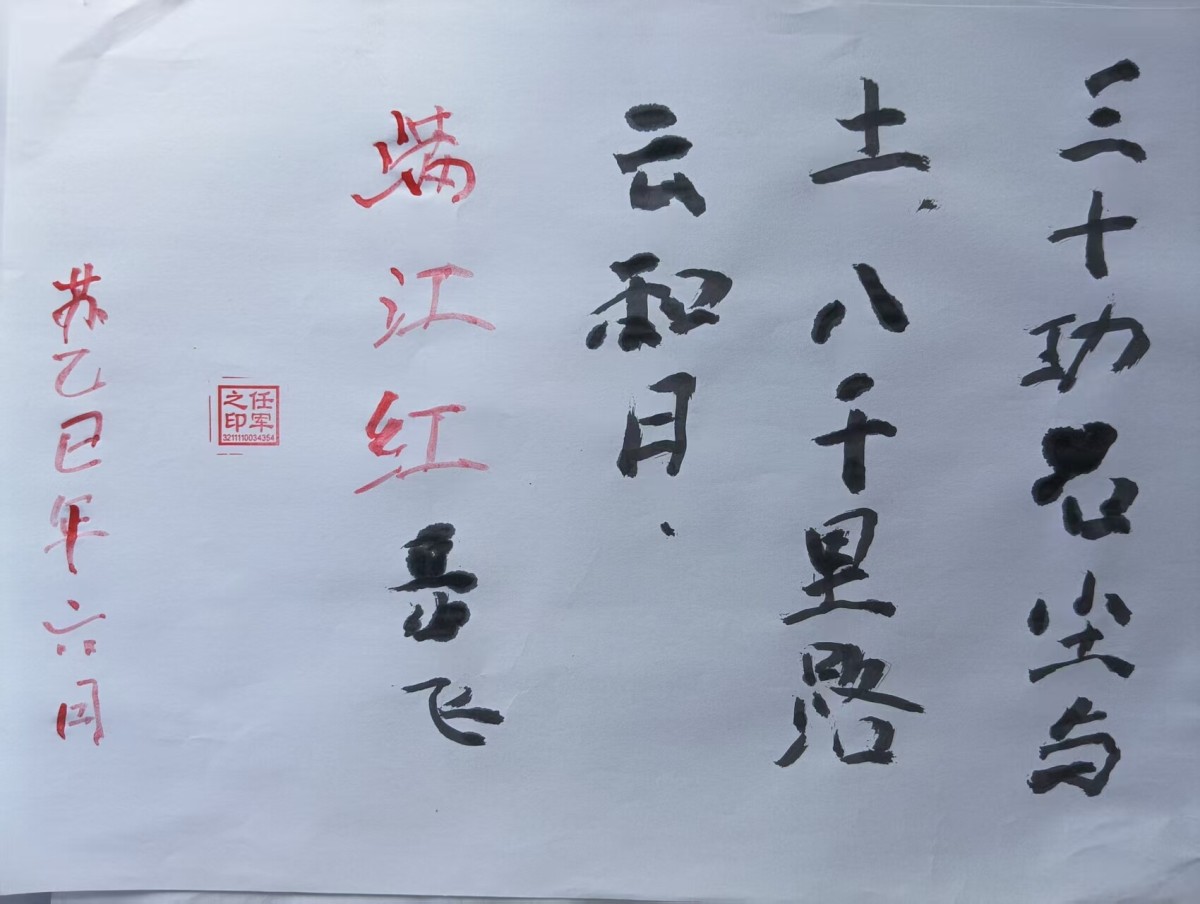 三十功名尘与
土、八千里路
云和月.
满江红 岳飞
任军之印
3211110034354
苏乙巳年六月